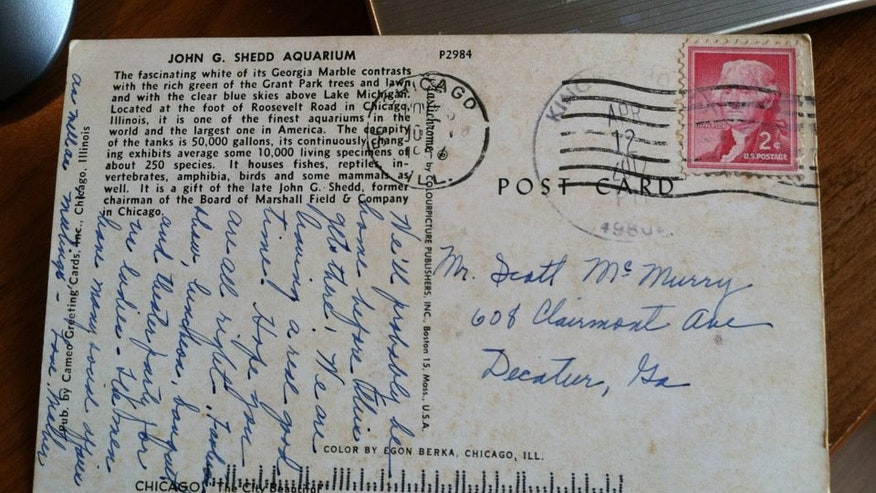 JOHN G. SHEDD AQUARIUM
P2984
The fascinating white of its Georgia Marble contrasts
with the rich green of the Grant Park trees and lawn
and with the clear blue skies above Lake Michigan.
Located at the foot of Roosevelt Road in Chicago,
Illinois, it is one of the finest aquariums in the
world and the largest one in America. The capacity
of the tanks is 50,000 gallons, its continuously chang-
ing exhibits average some 10,000 living specimens of
about 250 species. It houses fishes, reptiles, in-
vertebrates, amphibia, birds and some mammals as
well. It is a gift of the late John G. Shedd, former
chairman of the Board of Marshall Field & Company
in Chicago.
We'll probably be
home before this
gets there! We are
having a real good
time! Hope you
are all right - Fashion
show, luncheon, banquet
and theater party for
the ladies - The men
have many social affairs
as well as meetings - Love, Mother
Pub. by Cameo Greeting Cards, Inc., Chicago, Illinois
Plastichrome by COLOURPICTURE PUBLISHERS, INC., Boston 15, Mass., U.S.A.
CHICAGO
ILL.
AUG
12
2¢
U.S. POSTAGE
POST CARD
Mr. Scott McMurry
608 Clairmont Ave
Decatur, Ga
COLOR BY EGON BERKA, CHICAGO, ILL.
CHICAGO, "The City Beautiful"